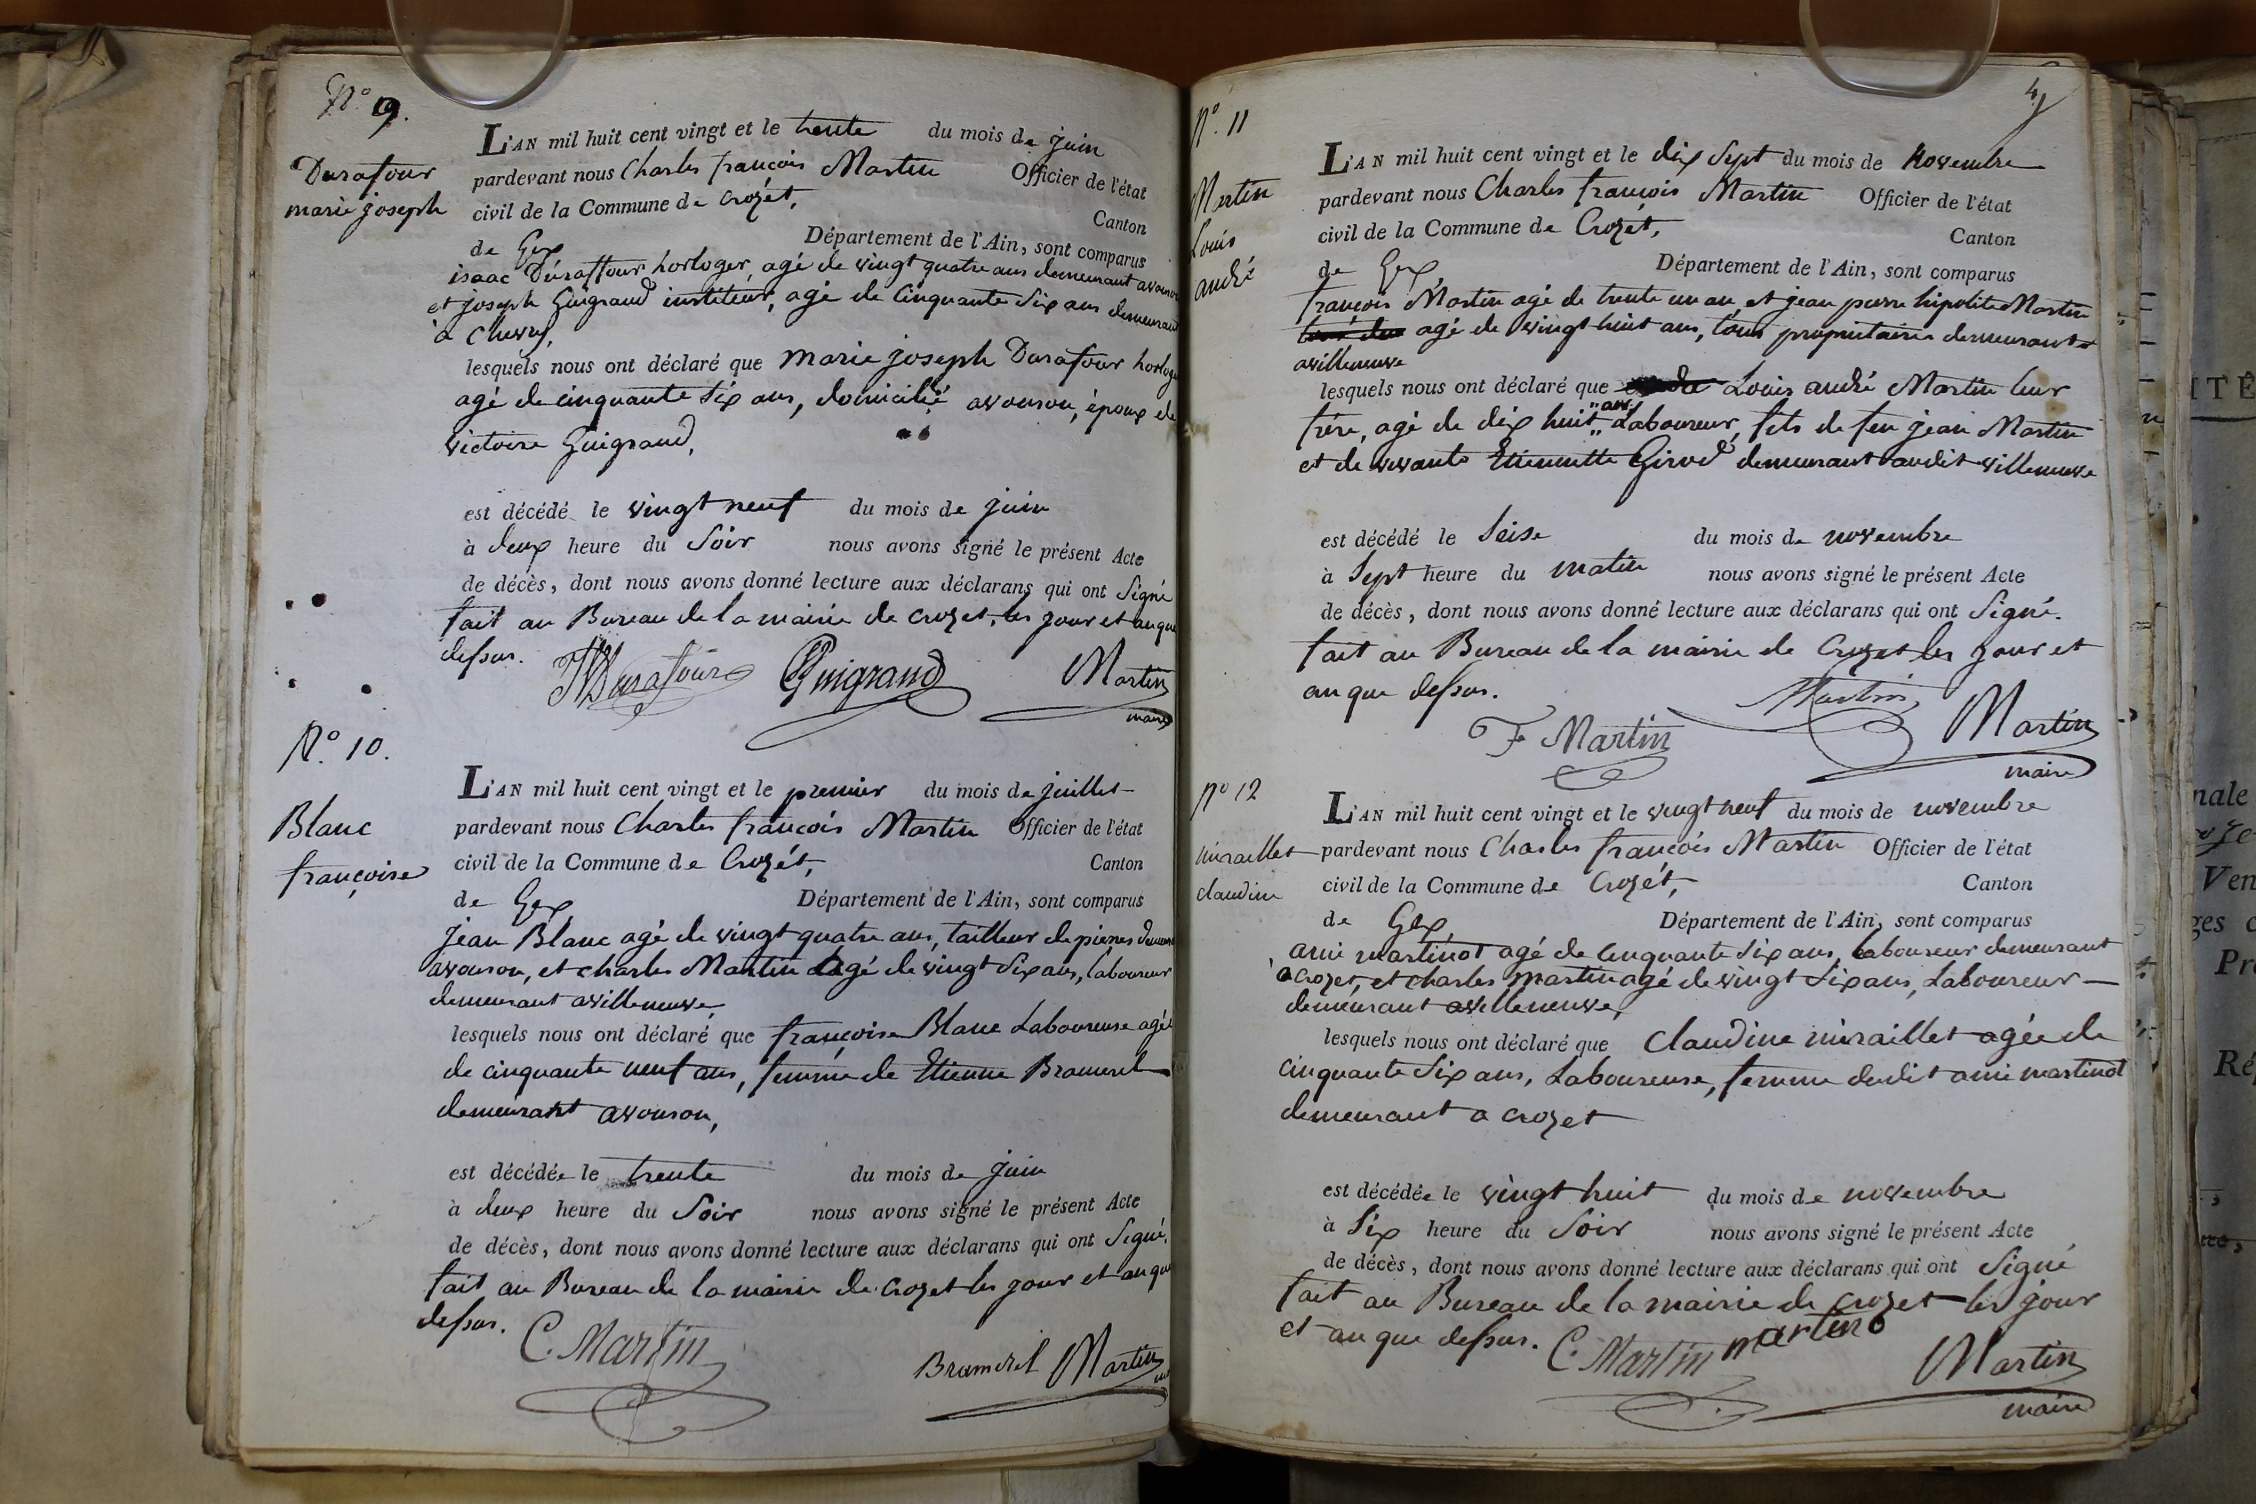 N.° 9.
Durafour
marie joseph
L'AN mil huit cent vingt et le trente du mois de juin
pardevant nous Charles françois Martin Officier de l'état
civil de la Commune de Crozét, Canton
de Gex Département de l'Ain, sont comparus
isaac Duraffour horloger, agé de vingt quatre ans demeurant avouson
et joseph Guigraud instituteur, agé de cinquante six ans demeurant
à Chevry,
lesquels nous ont déclaré que marie joseph Durafour horloger
agé de cinquante six ans, domicilié avouson, époux de
victoire Guigraud,
est décédé le vingt neuf du mois de juin
à deux heure du Soir nous avons signé le présent Acte
de décès, dont nous avons donné lecture aux déclarans qui ont Signé
fait au Bureau de la mairie de crozet, les jour et an que
dessus.
Durafour Guigraud Martin
maire
N.° 10.
Blanc
françoise
L'AN mil huit cent vingt et le premier du mois de juillet
pardevant nous Charles françois Martin Officier de l'état
civil de la Commune de Crozét, Canton
de Gex Département de l'Ain, sont comparus
jean Blanc agé de vingt quatre ans, tailleur de pierres demeurant
avouson, et charles Martin agé de vingt Six ans, laboureur
demeurant avilleneuve,
lesquels nous ont déclaré que françoise Blanc Laboureuse agée
de cinquante neuf ans, femme de Etienne Bramerel
demeurant avouson,
est décédée le trente du mois de juin
à deux heure du Soir nous avons signé le présent Acte
de décès, dont nous avons donné lecture aux déclarans qui ont Signé.
fait au Bureau de la mairie de crozet les jour et an que
dessus.
C. Martin Bramerel Martin
N.° 11
Martin
Louis
andré
L'AN mil huit cent vingt et le dix Sept du mois de Novembre
pardevant nous Charles françois Martin Officier de l'état
civil de la Commune de Crozét, Canton
de Gex Département de l'Ain, sont comparus
françois Martin agé de trente un an, et jean pierre hipolite Martin
agé de vingt huit ans, tous propriétaires demeurant
avilleneuve
lesquels nous ont déclaré que Louis andré Martin leur
frère, agé de dix huit "ans" Laboureur, fils de feu jean Martin
et de vivante Etiennette Girod demeurant audit villeneuve
est décédé le Seise du mois de novembre
à Sept heure du matin nous avons signé le présent Acte
de décès, dont nous avons donné lecture aux déclarans qui ont Signé.
fait au Bureau de la mairie de Crozet les jour et
an que dessus.
F Martin Martin Martin
maire
n° 12
miraillet
claudine
L'AN mil huit cent vingt et le vingt neuf du mois de novembre
pardevant nous Charles françois Martin Officier de l'état
civil de la Commune de Crozét, Canton
de Gex Département de l'Ain, sont comparus
ami martinot agé de cinquante Six ans, laboureur demeurant
à crozet, et charles Martin agé de vingt Six ans, Laboureur
demeurant avilleneuve,
lesquels nous ont déclaré que Claudine miraillet agée de
cinquante Six ans, Laboureuse, femme dudit ami martinot
demeurant a crozet
est décédée le vingt huit du mois de novembre
à Six heure du Soir nous avons signé le présent Acte
de décès, dont nous avons donné lecture aux déclarans qui ont Signé
fait au Bureau de la mairie de crozet les jour
et an que dessus. C. Martin martino
Martin
maire